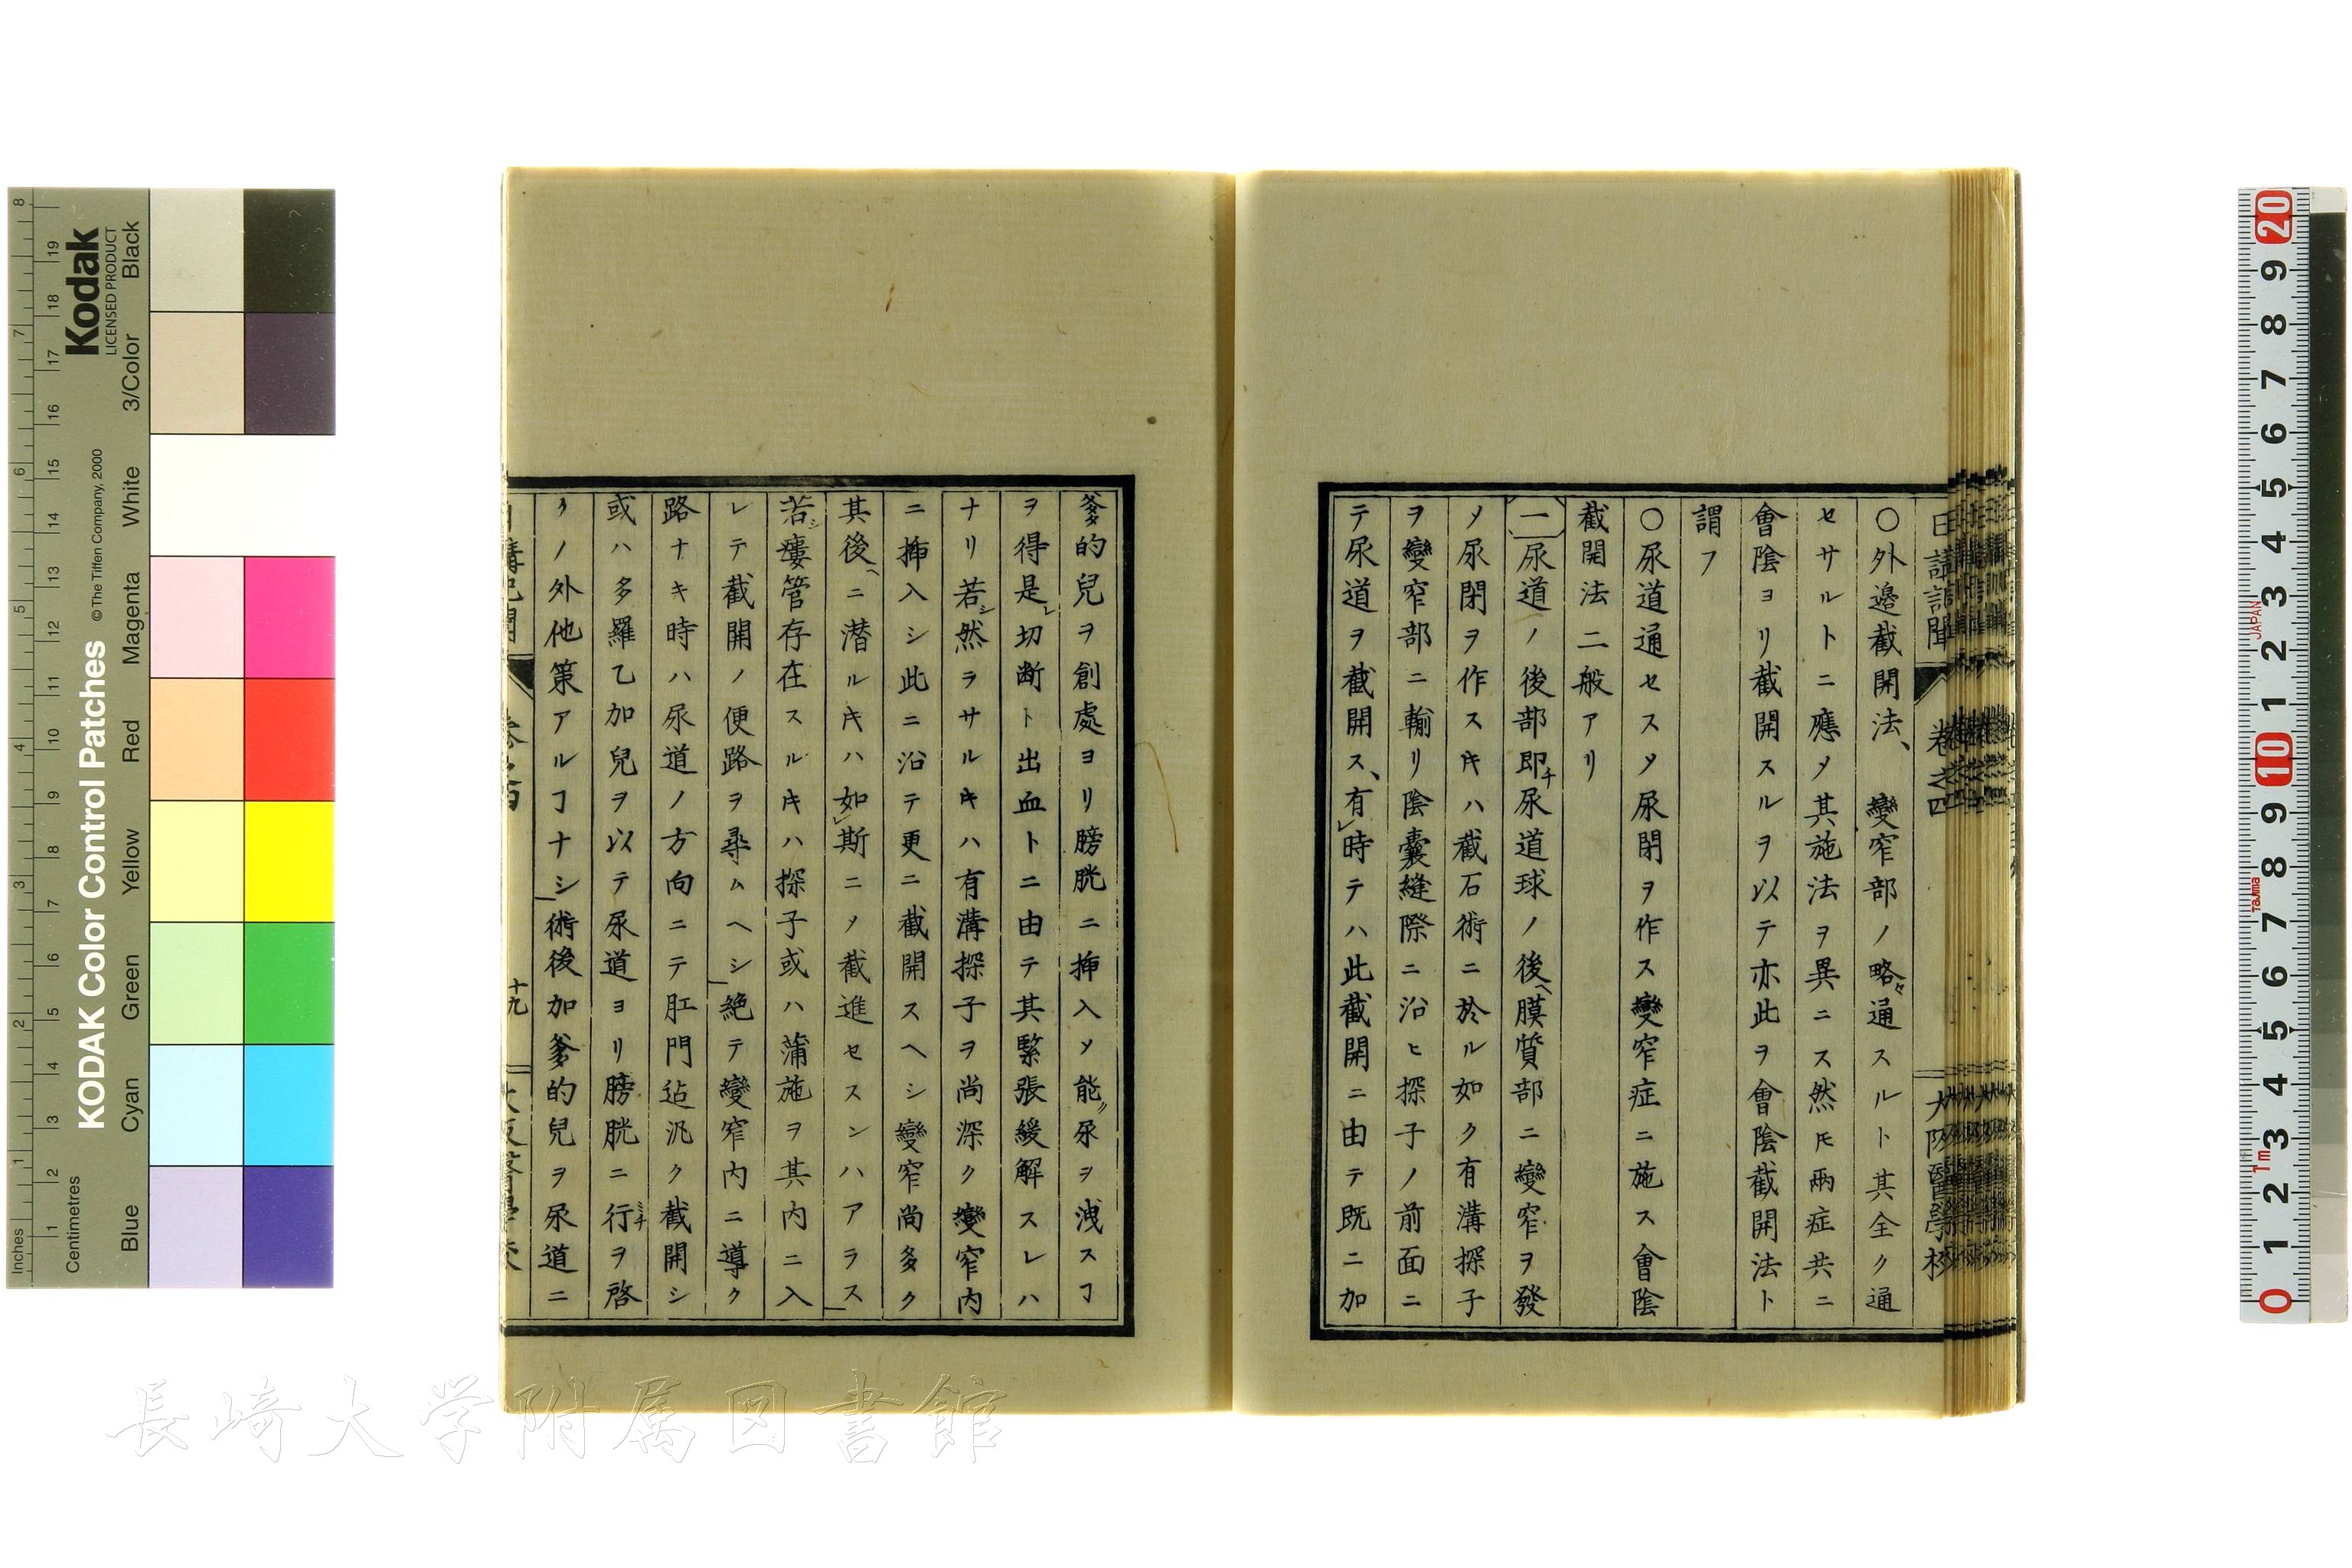 日講記聞 卷之四 大阪醫學校
〇外邉截開法、變窄部ノ略々通スルト其全ク通
セサルトニ應メ其施法ヲ異ニス然𪜈兩症共ニ
會陰ヨリ截開スルヲ以テ亦此ヲ會陰截開法ト
謂フ
〇尿道通セスメ尿閉ヲ作ス變窄症ニ施ス會陰
截開法二般アリ
一尿道ノ後部即チ尿道球ノ後へ膜質部ニ變窄ヲ發
メ尿閉ヲ作スキハ截石術ニ於ル如ク有溝探子
ヲ變窄部ニ輸リ陰囊縫際ニ沿ヒ探子ノ前面ニ
テ尿道ヲ截開ス、有レ時テハ此截開ニ由テ既ニ加
爹的兒ヲ創處ヨリ膀胱ニ挿入メ能ク尿ヲ洩スヿ
ヲ得是レ切断ト出血トニ由テ其緊張緩解スレハ
ナリ若シ然ラサルキハ有溝探子ヲ尚深ク變窄内
ニ挿入シ此ニ沿テ更ニ截開スヘシ變窄尚多ク
其後へニ潜ルキハ如レ斯ニメ截進セスンハアラス
若シ瘻管存在スルキハ探子或ハ蒲施ヲ其内ニ入
レテ截開ノ便路ヲ尋ムヘシ絶テ變窄内ニ導ク
路ナキ時ハ尿道ノ方向ニテ肛門迠汎ク截開シ
或ハ多羅乙加兒ヲ以テ尿道ヨリ膀胱ニ行ミチヲ啓
クノ外他策アルヿナシ術後加爹的兒ヲ尿道ニ
十九
Kodak
LICENSED PRODUCT
KODAK Color Control Patches
© The Tiffen Company, 2000
Inches
Centimetres
Blue Cyan Green Yellow Red Magenta White 3/Color Black
長崎大学附属図書館
JAPAN
Tajima
1m